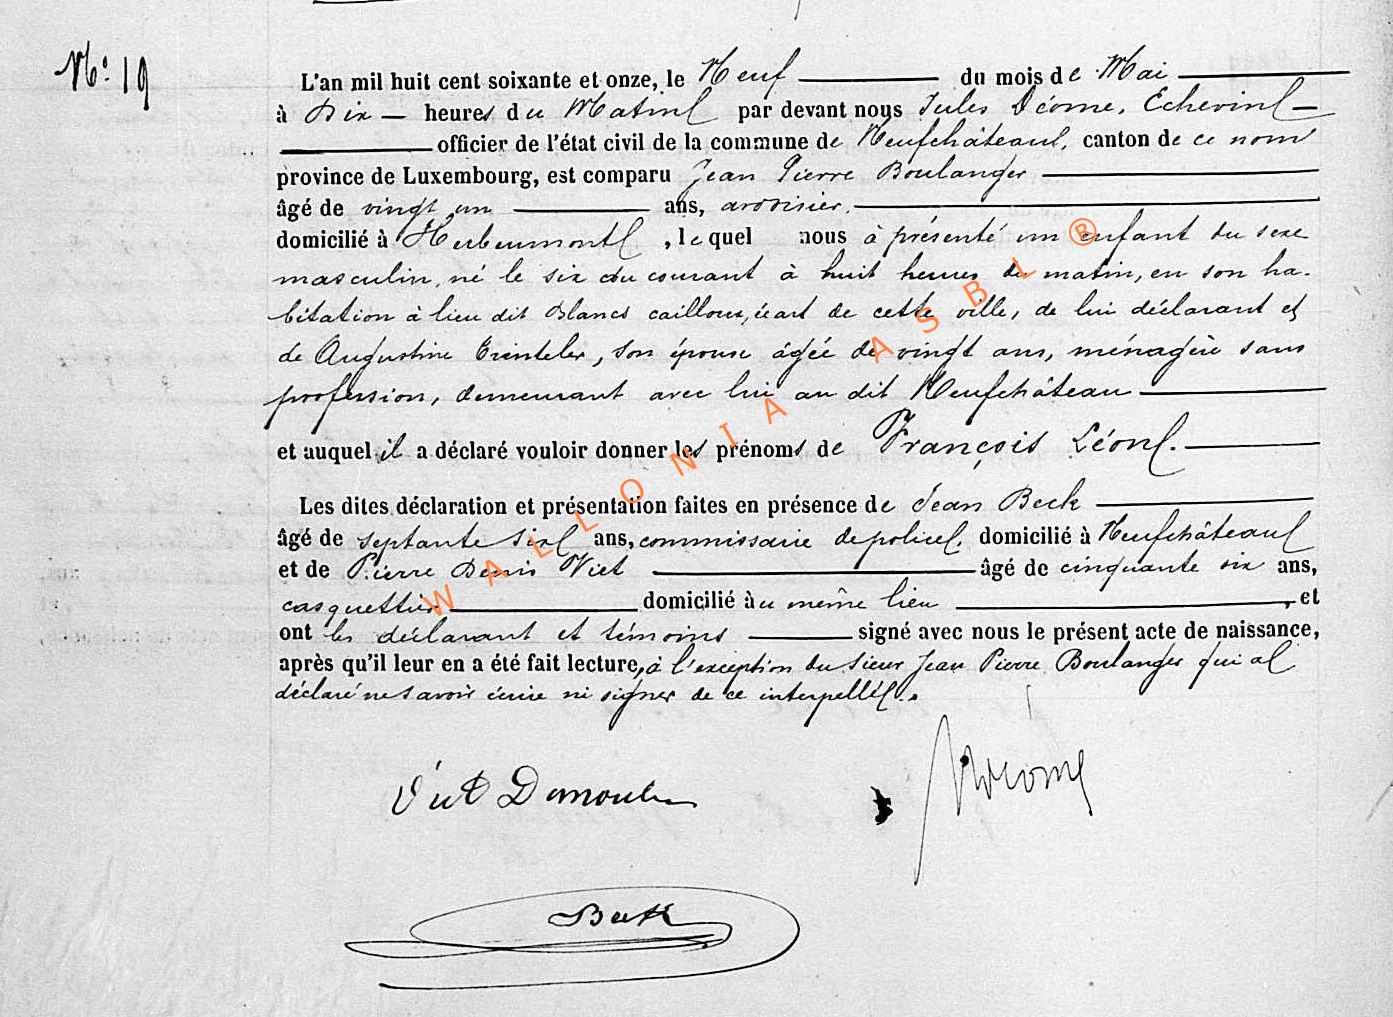 N° 19
L'an mil huit cent soixante et onze, le Neuf du mois de Mai
à Dix heures du Matin par devant nous Jules Déome, Echevin
officier de l'état civil de la commune de Neufchâteau, canton de ce nom
province de Luxembourg, est comparu Jean Pierre Boulanger
âgé de vingt un ans, ardoisier.
domicilié à Herbeumont, lequel nous à présenté un enfant du sexe
masculin, né le six du courant à huit heures du matin, en son ha-
bitation à lieu dit Blancs cailloux, écart de cette ville, de lui déclarant et
de Augustine Trinteler, son épouse âgée de vingt ans, ménagère sans
profession, demeurant avec lui au dit Neufchâteau
et auquel il a déclaré vouloir donner les prénoms de François Léon.
Les dites déclaration et présentation faites en présence de Jean Beck
âgé de septante six ans, commissaire de police, domicilié à Neufchâteau
et de Pierre Denis Viet âgé de cinquante six ans,
casquettier domicilié au même lieu, et
ont les déclarant et témoins signé avec nous le présent acte de naissance,
après qu'il leur en a été fait lecture, à l'exception du sieur Jean Pierre Boulanger qui a
déclaré ne savoir écrire ni signer de ce interpellé.
Déome
Beck
WALLONIA ASBL ®